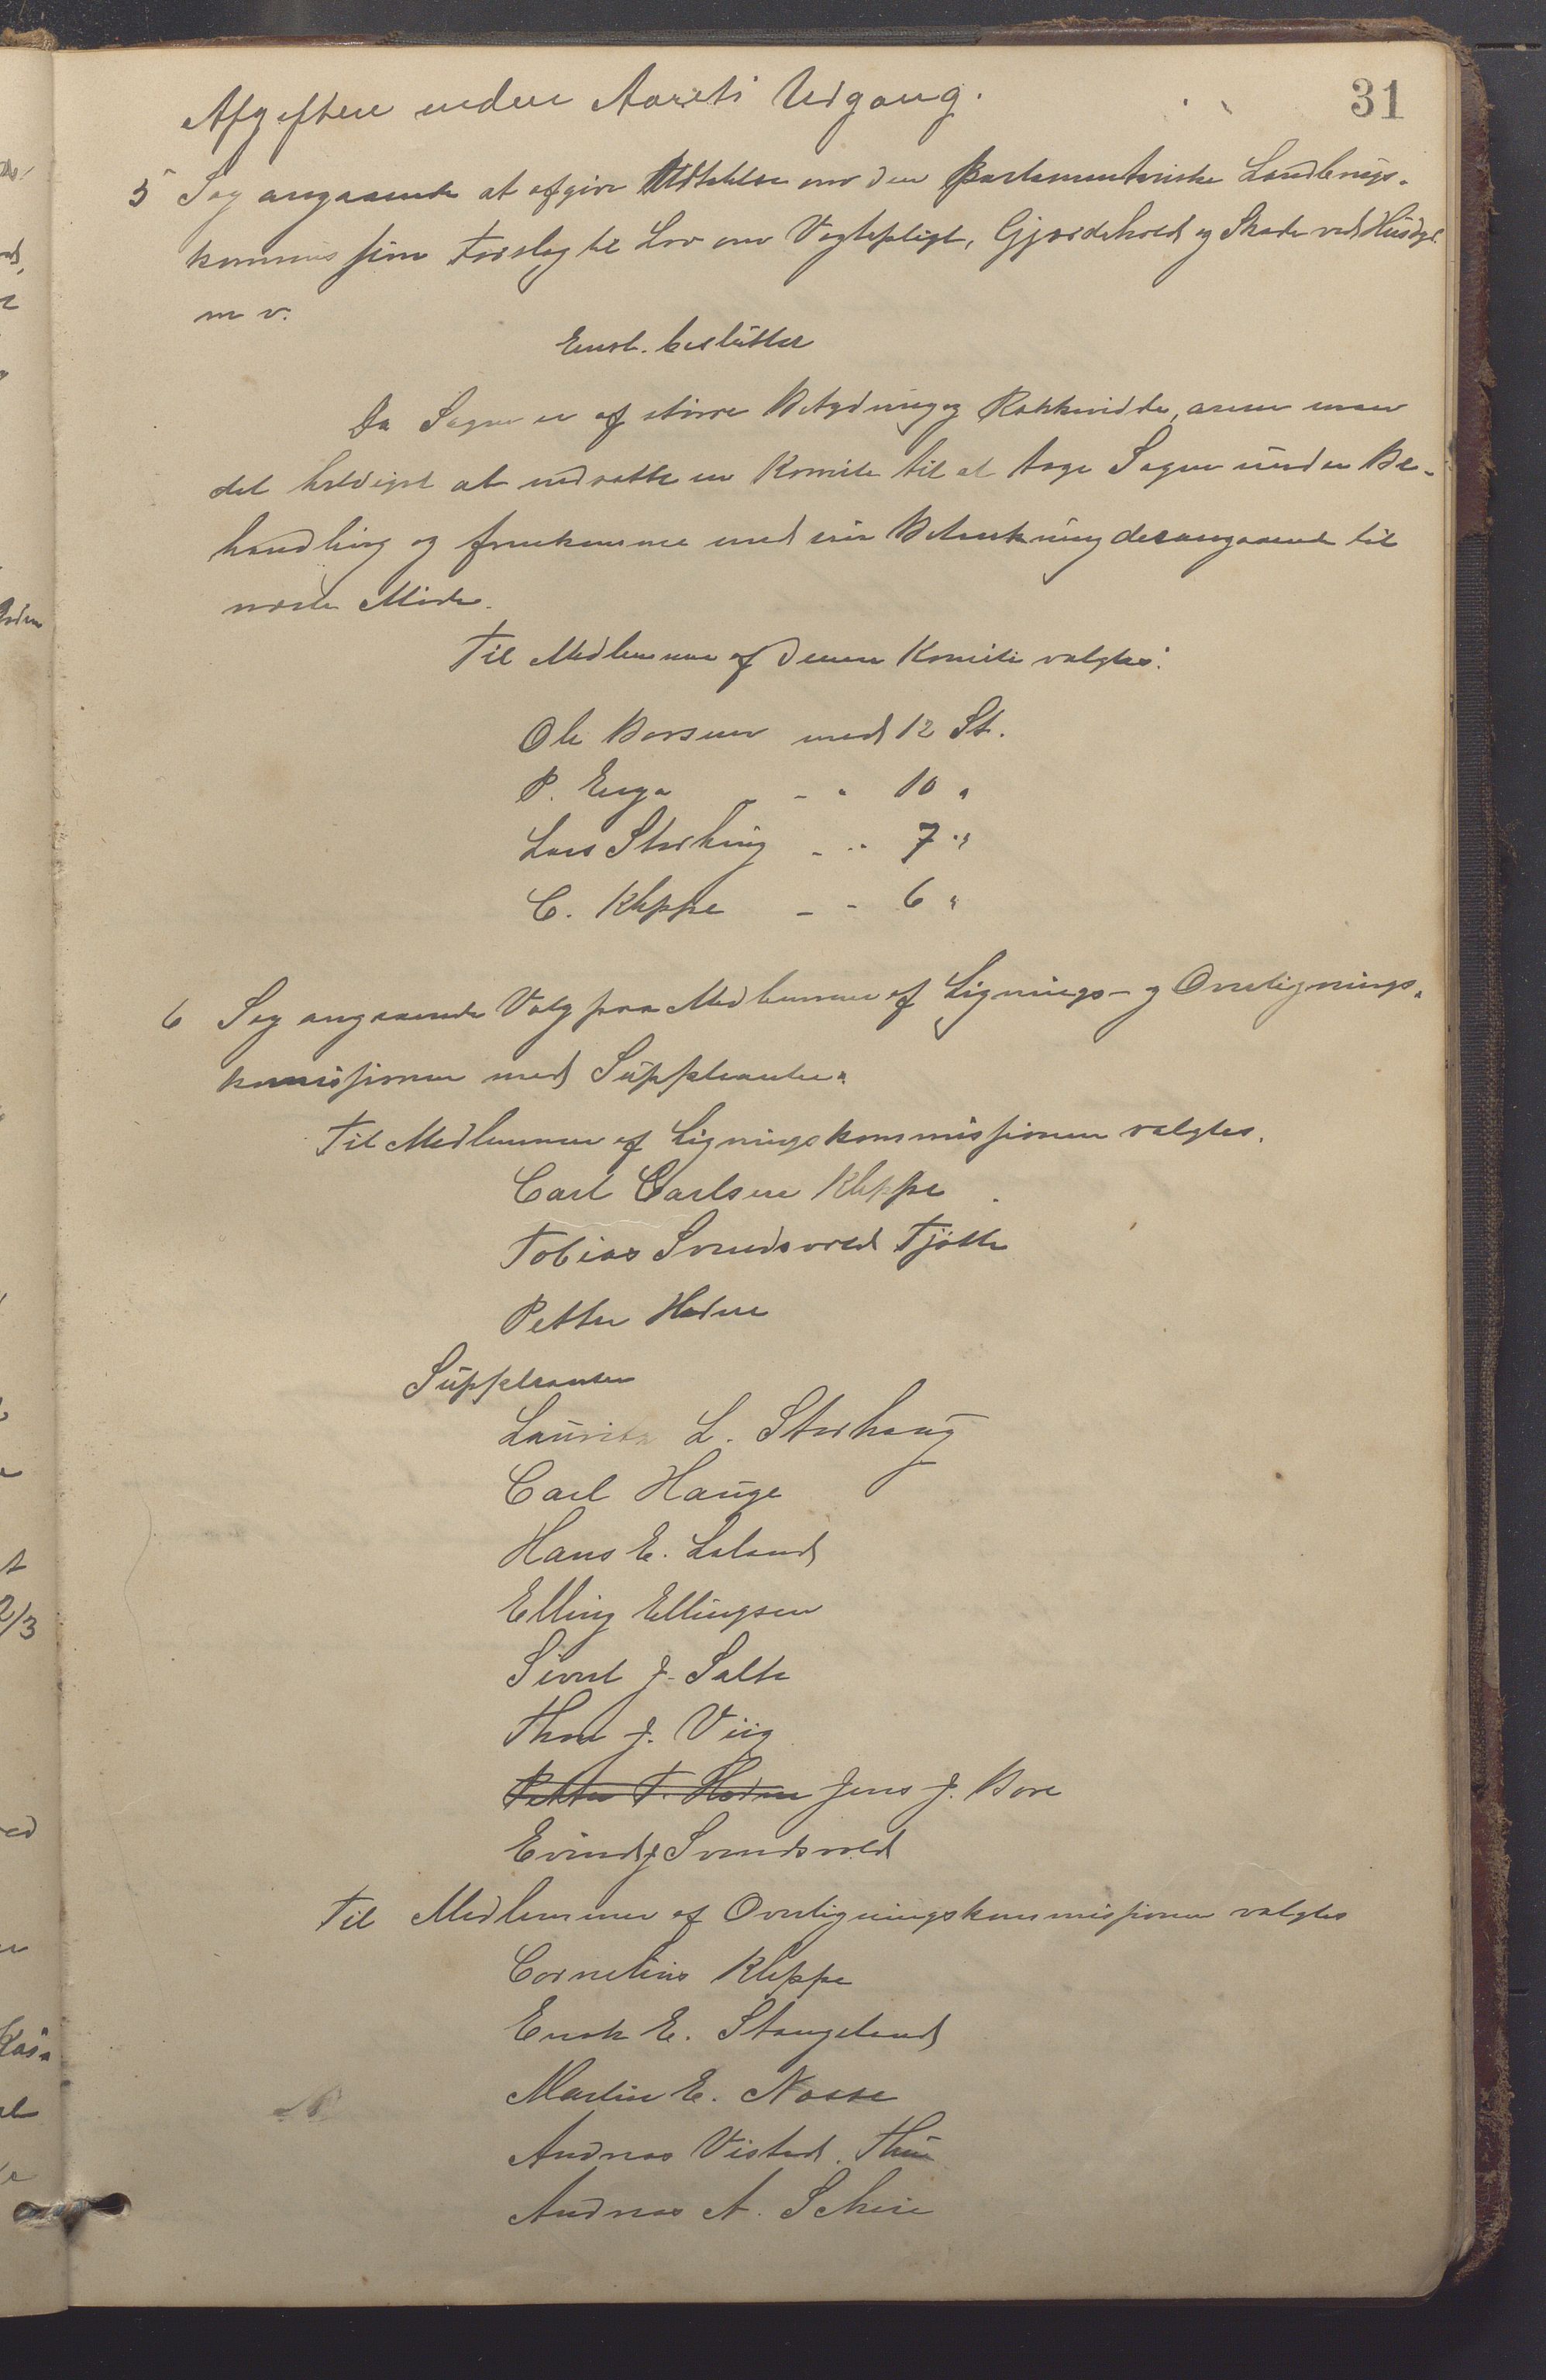 31
Afgiften inden Aarets Udgang.
5 Sag angaaende at afgive Udtalelse om den Parlamentariske Landbrugs-
kommissions Forslag til Lov om Vogtepligt, Gjærdehold og Skade ved Husdyr
m v.
Enst. besluttet
Da Sagen er af større Betydning og Rækkevidde, anser man
det heldigst at nedsætte en Komite til at tage Sagen under Be-
handling og fremkomme med sin Betænkning desangaaende til
næste Møde.
Til Medlemmer af denne Komite valgtes:
Ole Borsen med 12 St.
P. Enga - " 10 "
Lars Storhaug - " 7 "
C. Kleppe - - 6 "
6 Sag angaaende Valg paa Medlemmer af Lignings- og Overlignings-
kommissionen med Suppleanter.
Til Medlemmer af Ligningskommissionen valgtes.
Carl Carlsen Kleppe
Tobias Svendsvold Tjøtte
Petter Hodne
Suppleanter
Lauritz L. Storhaug
Carl Hauge
Hans E. Laland
Elling Ellingsen
Sivert J. Salte
Thore J. Viig
Petter T. Hodne Jens J. Bore
Evind J Svendsvold
Til Medlemmer af Overligningskommissionen valgtes
Cornelius Kleppe
Enok E. Stangeland
Martin E. Næsse
Andreas Vistad. Thu
Andreas A. Skeie